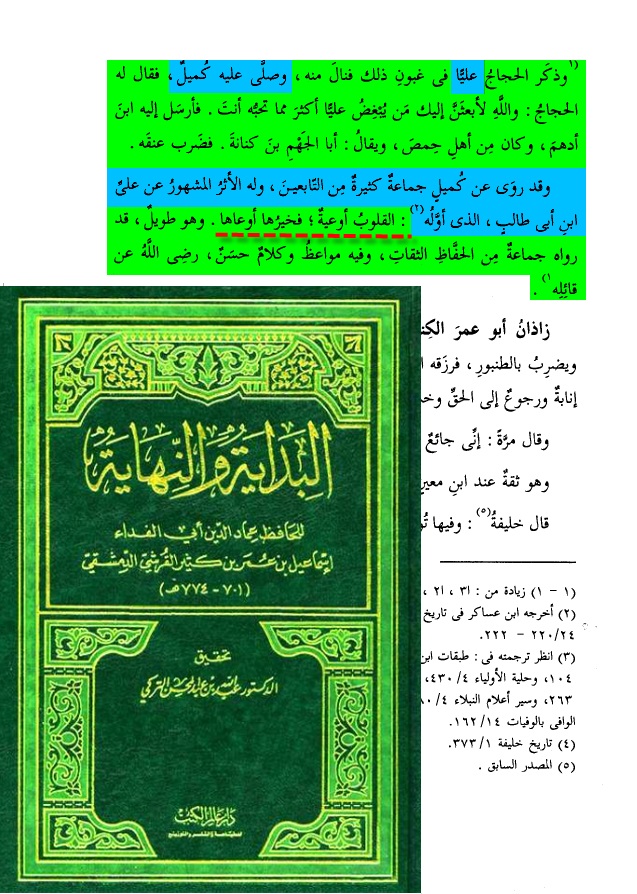 (١)وذكَر الحجاجُ عليًّا فى غبونِ ذلك فنالَ منه، وصلَّى عليه كُميلٌ، فقال له
الحجاجُ: واللَّهِ لأبعثَنَّ إليك مَن يُبْغِضُ عليًّا أكثرَ مما تحبُّه أنتَ. فأرسَل إليه ابنَ
أدهمَ، وكان مِن أهلِ حِمصَ، ويقالُ: أبا الجَهْمِ بنَ كنانةَ. فضَرب عنقَه.
وقد روَى عن كُميلٍ جماعةٌ كثيرةٌ مِن التّابعينَ، وله الأثرُ المشهورُ عن علىِّ
ابنِ أبى طالبٍ، الذى أوَّلُه(٢): القلوبُ أوعيةٌ؛ فخيرُها أوعاها. وهو طويلٌ، قد
رواه جماعةٌ مِن الحفَّاظِ الثقاتِ، وفيه مواعظُ وكلامٌ حسَنٌ، رضِى اللَّهُ عن
قائلِه(١).
زاذانُ أبو عمرَ الكِن
ويضرِبُ بالطنبورِ، فرزَقه ا
إنابةٌ ورجوعٌ إلى الحقِّ وخ
وقال مرَّةً: إنِّى جائعٌ
وهو ثقةٌ عند ابنِ معينٍ
قال خليفةُ(٥): وفيها تُو
(١ - ١) زيادة من: ا٣، ا٢،
(٢) أخرجه ابن عساكر فى تاريخ
٢٢٠/٢٤ - ٢٢٢.
(٣) انظر ترجمته فى: طبقات ابن
١٠٤، وحلية الأولياء ٤٣٠/٤،
٢٦٣، وسير أعلام النبلاء ٨٠/٤
الوافى بالوفيات ١٦٢/١٤.
(٤) تاريخ خليفة ٣٧٣/١.
(٥) المصدر السابق.
البداية والنهاية
للحافظ عماد الدين أبي الفداء
إسماعيل بن عمر بن كثير القرشي الدمشقي
(٧٠١ - ٧٧٤هـ)
تحقيق
الدكتور عبد الله بن عبد المحسن التركي
دار عالم الكتب
للطباعة والنشر والتوزيع